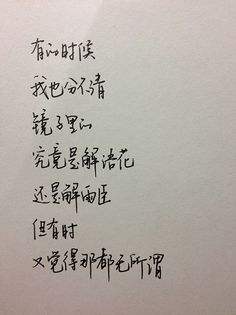 有的时候
我也分不清
镜子里的
究竟是解语花
还是解雨臣
但有时
又觉得那都无所谓